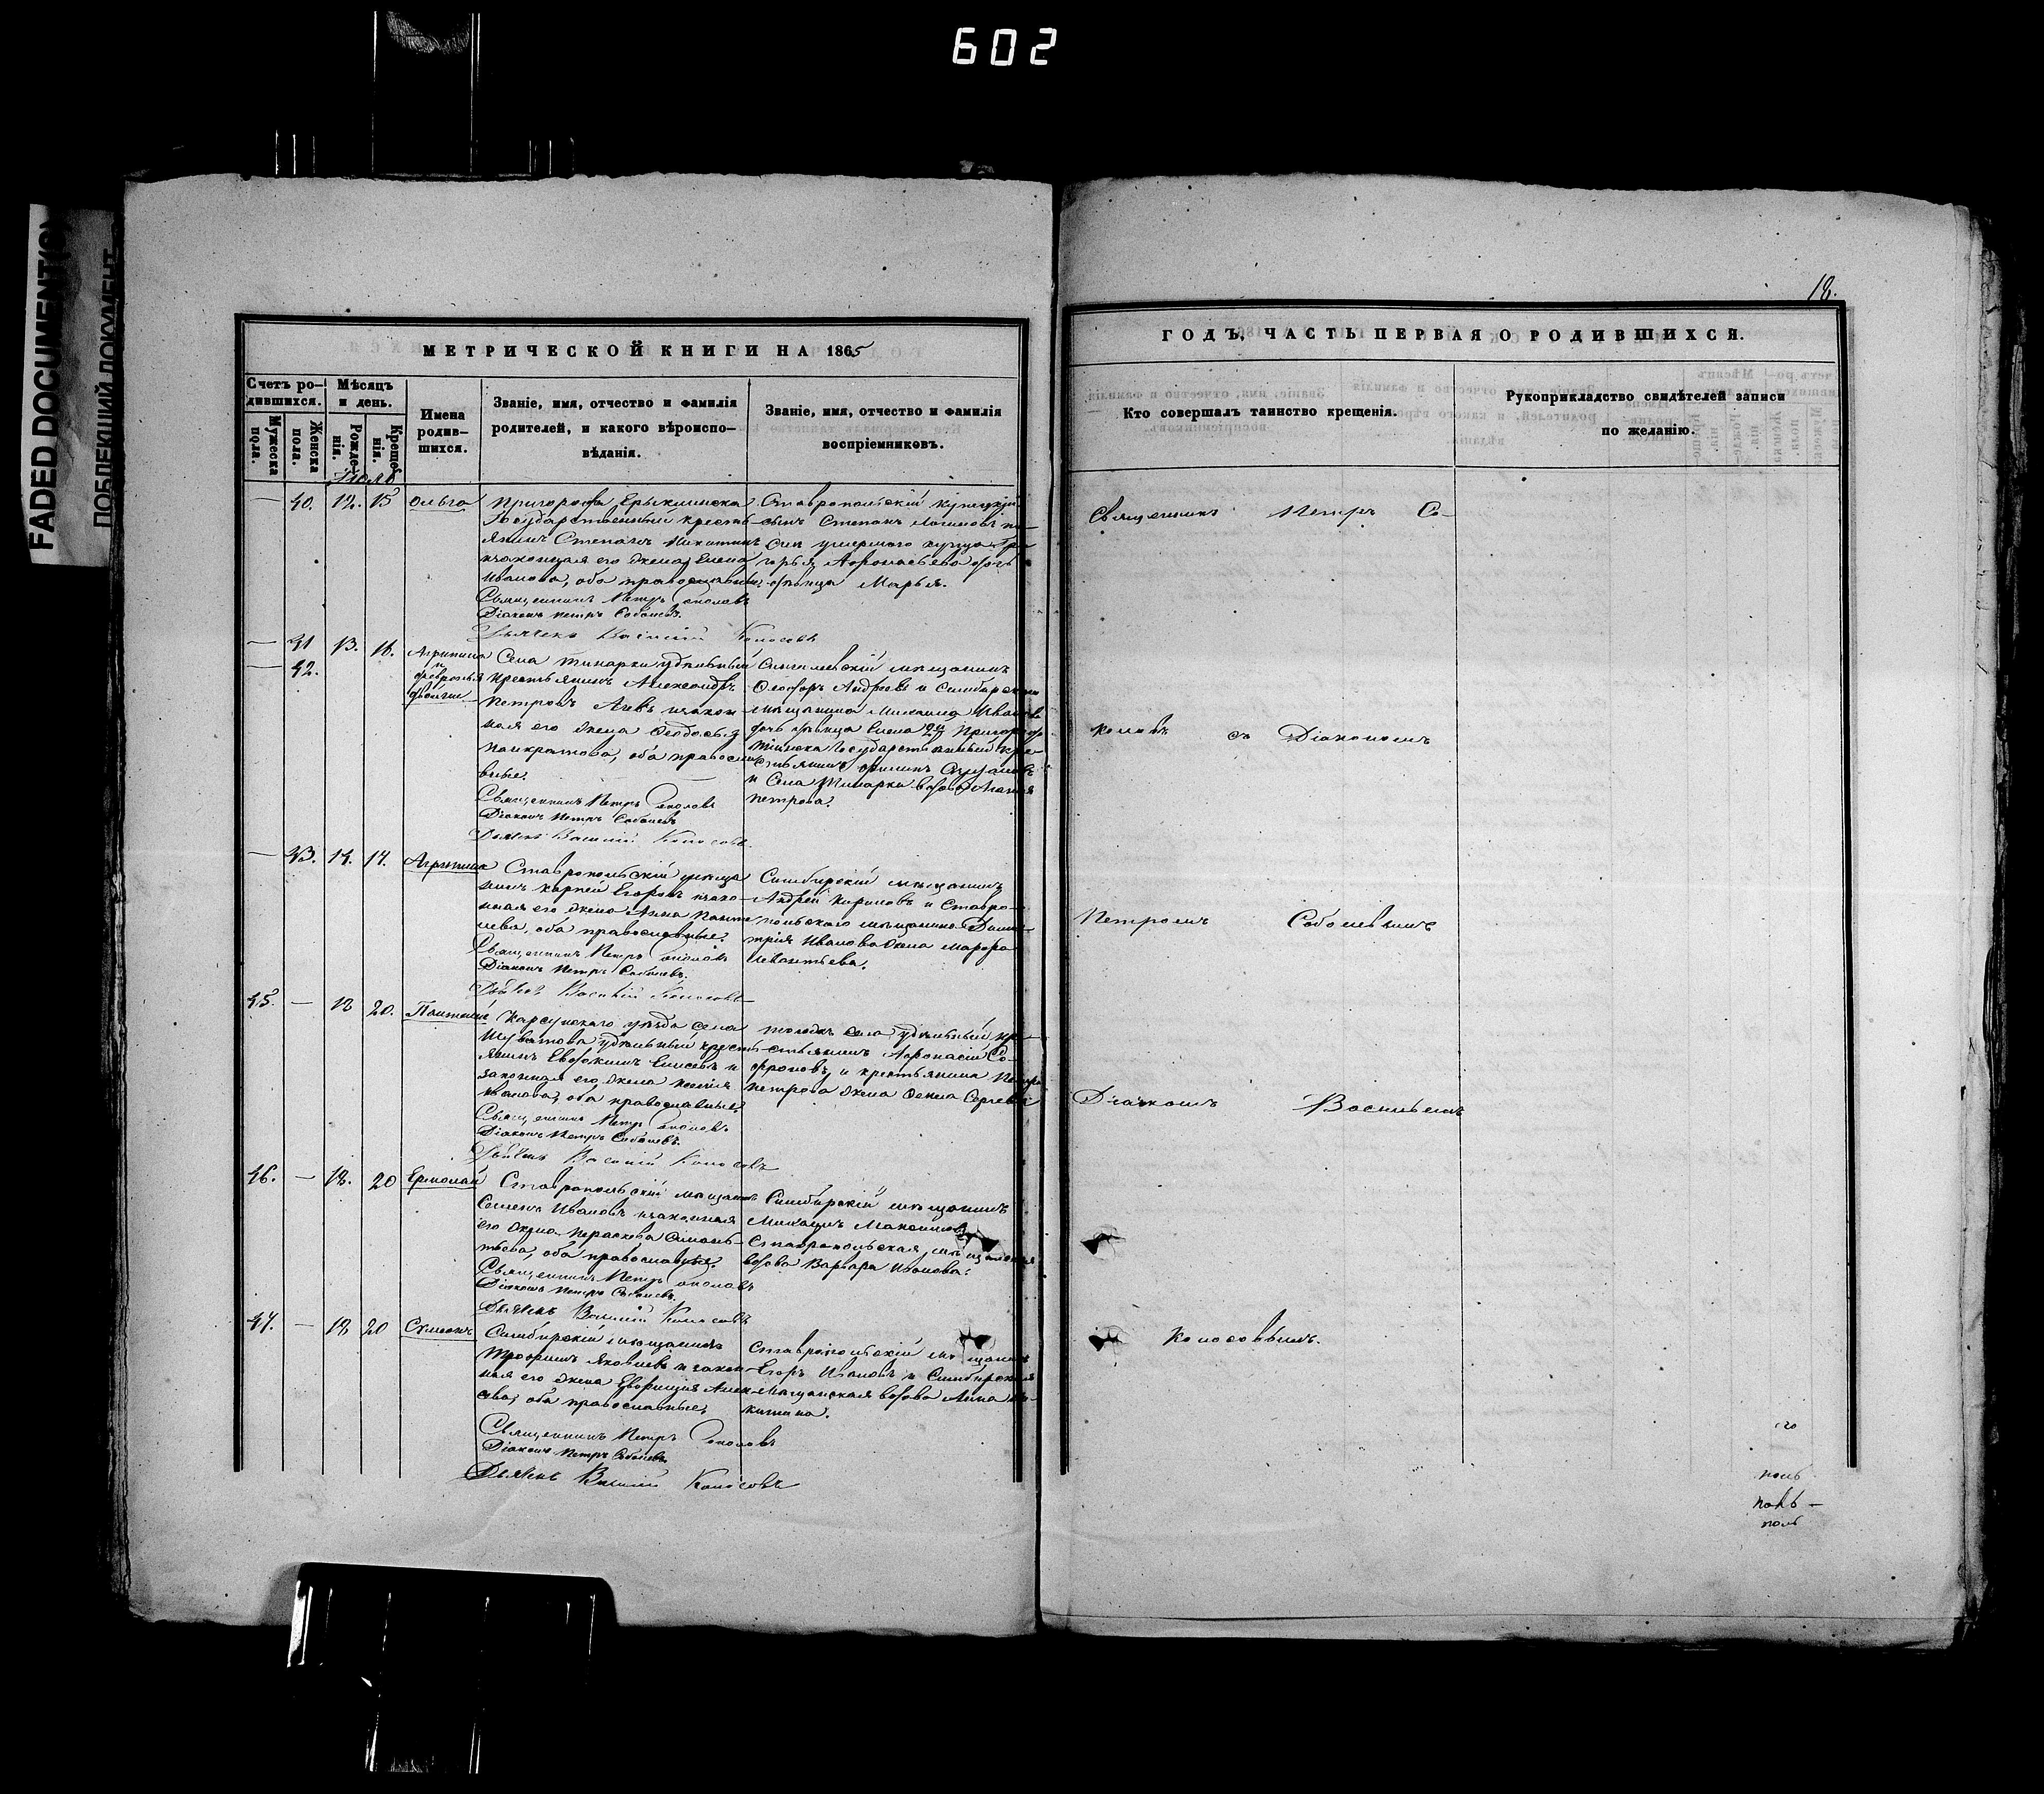 602
FADED DOCUMENT(S)
ПОБЛЕКШИЙ ДОКУМЕНТ
18.
МЕТРИЧЕСКОЙ КНИГИ НА 1865
Счетъ ро-
дившихся.
Мужеска
пола.
Женска
пола.
Мѣсяцъ
и день.
Рожде-
нія.
Креще-
нія.
Имена
родив-
шихся.
Званіе, имя, отчество и фамилія
родителей, и какого вѣроиспо-
вѣданія.
Званіе, имя, отчество и фамилія
воспріемниковъ.
Іюль
— 40. 12. 15 Ольга
Пригорода Ерыклинска
Государственный кресть-
янинъ Степанъ Никитинъ
изаконная его жена Елена
Иванова, оба православные.
Священникъ Петръ Соколовъ
Діаконъ Петръ Соболевъ.
Дьячекъ Василій Колосовъ
Ставропольскій купецкій
сынъ Степанъ Логиновъ
умершаго купца Гри-
горья Афонасьева дочь
дѣвица Марья.
— 41 13. 16. Агрипина
— 42. и
Февронья
двойни
Села Тинарки удѣльный
крестьянинъ Александръ
Петровъ изакон-
ная его жена Феодосья
Панкратова, оба правосла-
вные.
Священникъ Петръ Соколовъ
Діаконъ Петръ Соболевъ
Дьячекъ Василій Колосовъ.
мѣщанинъ
Федоръ Андреевъ и Симбирскаго
мѣщанина Михаила Иванова
дочь дѣвица Елена 2й Пригорода
Государственный кре-
стьянинъ
и Села Тинарки вдова
Петрова.
— 43. 14. 17. Агрипина
Ставропольскій мѣща-
нинъ Карпей Егоровъ изако-
нная его жена Анна Панте-
лева, оба православные.
Священникъ Петръ Соколовъ
Діаконъ Петръ Соболевъ.
Дьячекъ Василій Колосовъ
Симбирскій мѣщанинъ
Андрей Кириловъ и Ставро-
польскаго мѣщанина Дими-
трія Иванова жена Марфа
Леонтьева.
45. — 18 20. Пантелей
Карсунскаго уѣзда села
Шуватова удѣльный кресть-
янинъ Евдокимъ Елисеевъ и
законная его жена
Иванова, оба православные.
Священникъ Петръ Соколовъ.
Діаконъ Петръ Соболевъ.
Дьячекъ Василій Колосовъ
села удѣльный кре-
стьянинъ Афонасій Со-
фроновъ, и крестьянина Петра
Петрова жена Сергеева
46. — 18. 20 Ермолай
Ставропольскій мѣщанинъ
Семенъ Ивановъ изаконная
его жена Параскева
оба православные.
Священникъ Петръ Соколовъ
Діаконъ Петръ Соболевъ.
Дьячекъ Василій Колосовъ
Симбирскій мѣщанинъ
Михаилъ Максимовъ
Ставропольская мѣщанская
вдова Варвара Иванова.
47. — 18 20 Сумеонъ
Симбирскій мѣщанинъ
Трофимъ Яковлевъ и закон-
ная его жена Алек-
сѣева, оба православные.
Священникъ Петръ Соколовъ
Діаконъ Петръ Соболевъ.
Дьячекъ Василій Колосовъ
Ставропольскій мѣщанинъ
Егоръ Ивановъ и Симбирская
мѣщанская вдова Анна Ни-
китина.
ГОДЪ, ЧАСТЬ ПЕРВАЯ О РОДИВШИХСЯ.
Кто совершалъ таинство крещенія.
Рукоприкладство свидѣтелей записи
по желанію.
Священникъ Петръ Со-
коловъ съ Діакономъ
Петромъ Соболевымъ
Дьячкомъ Васильемъ
Колосовымъ.